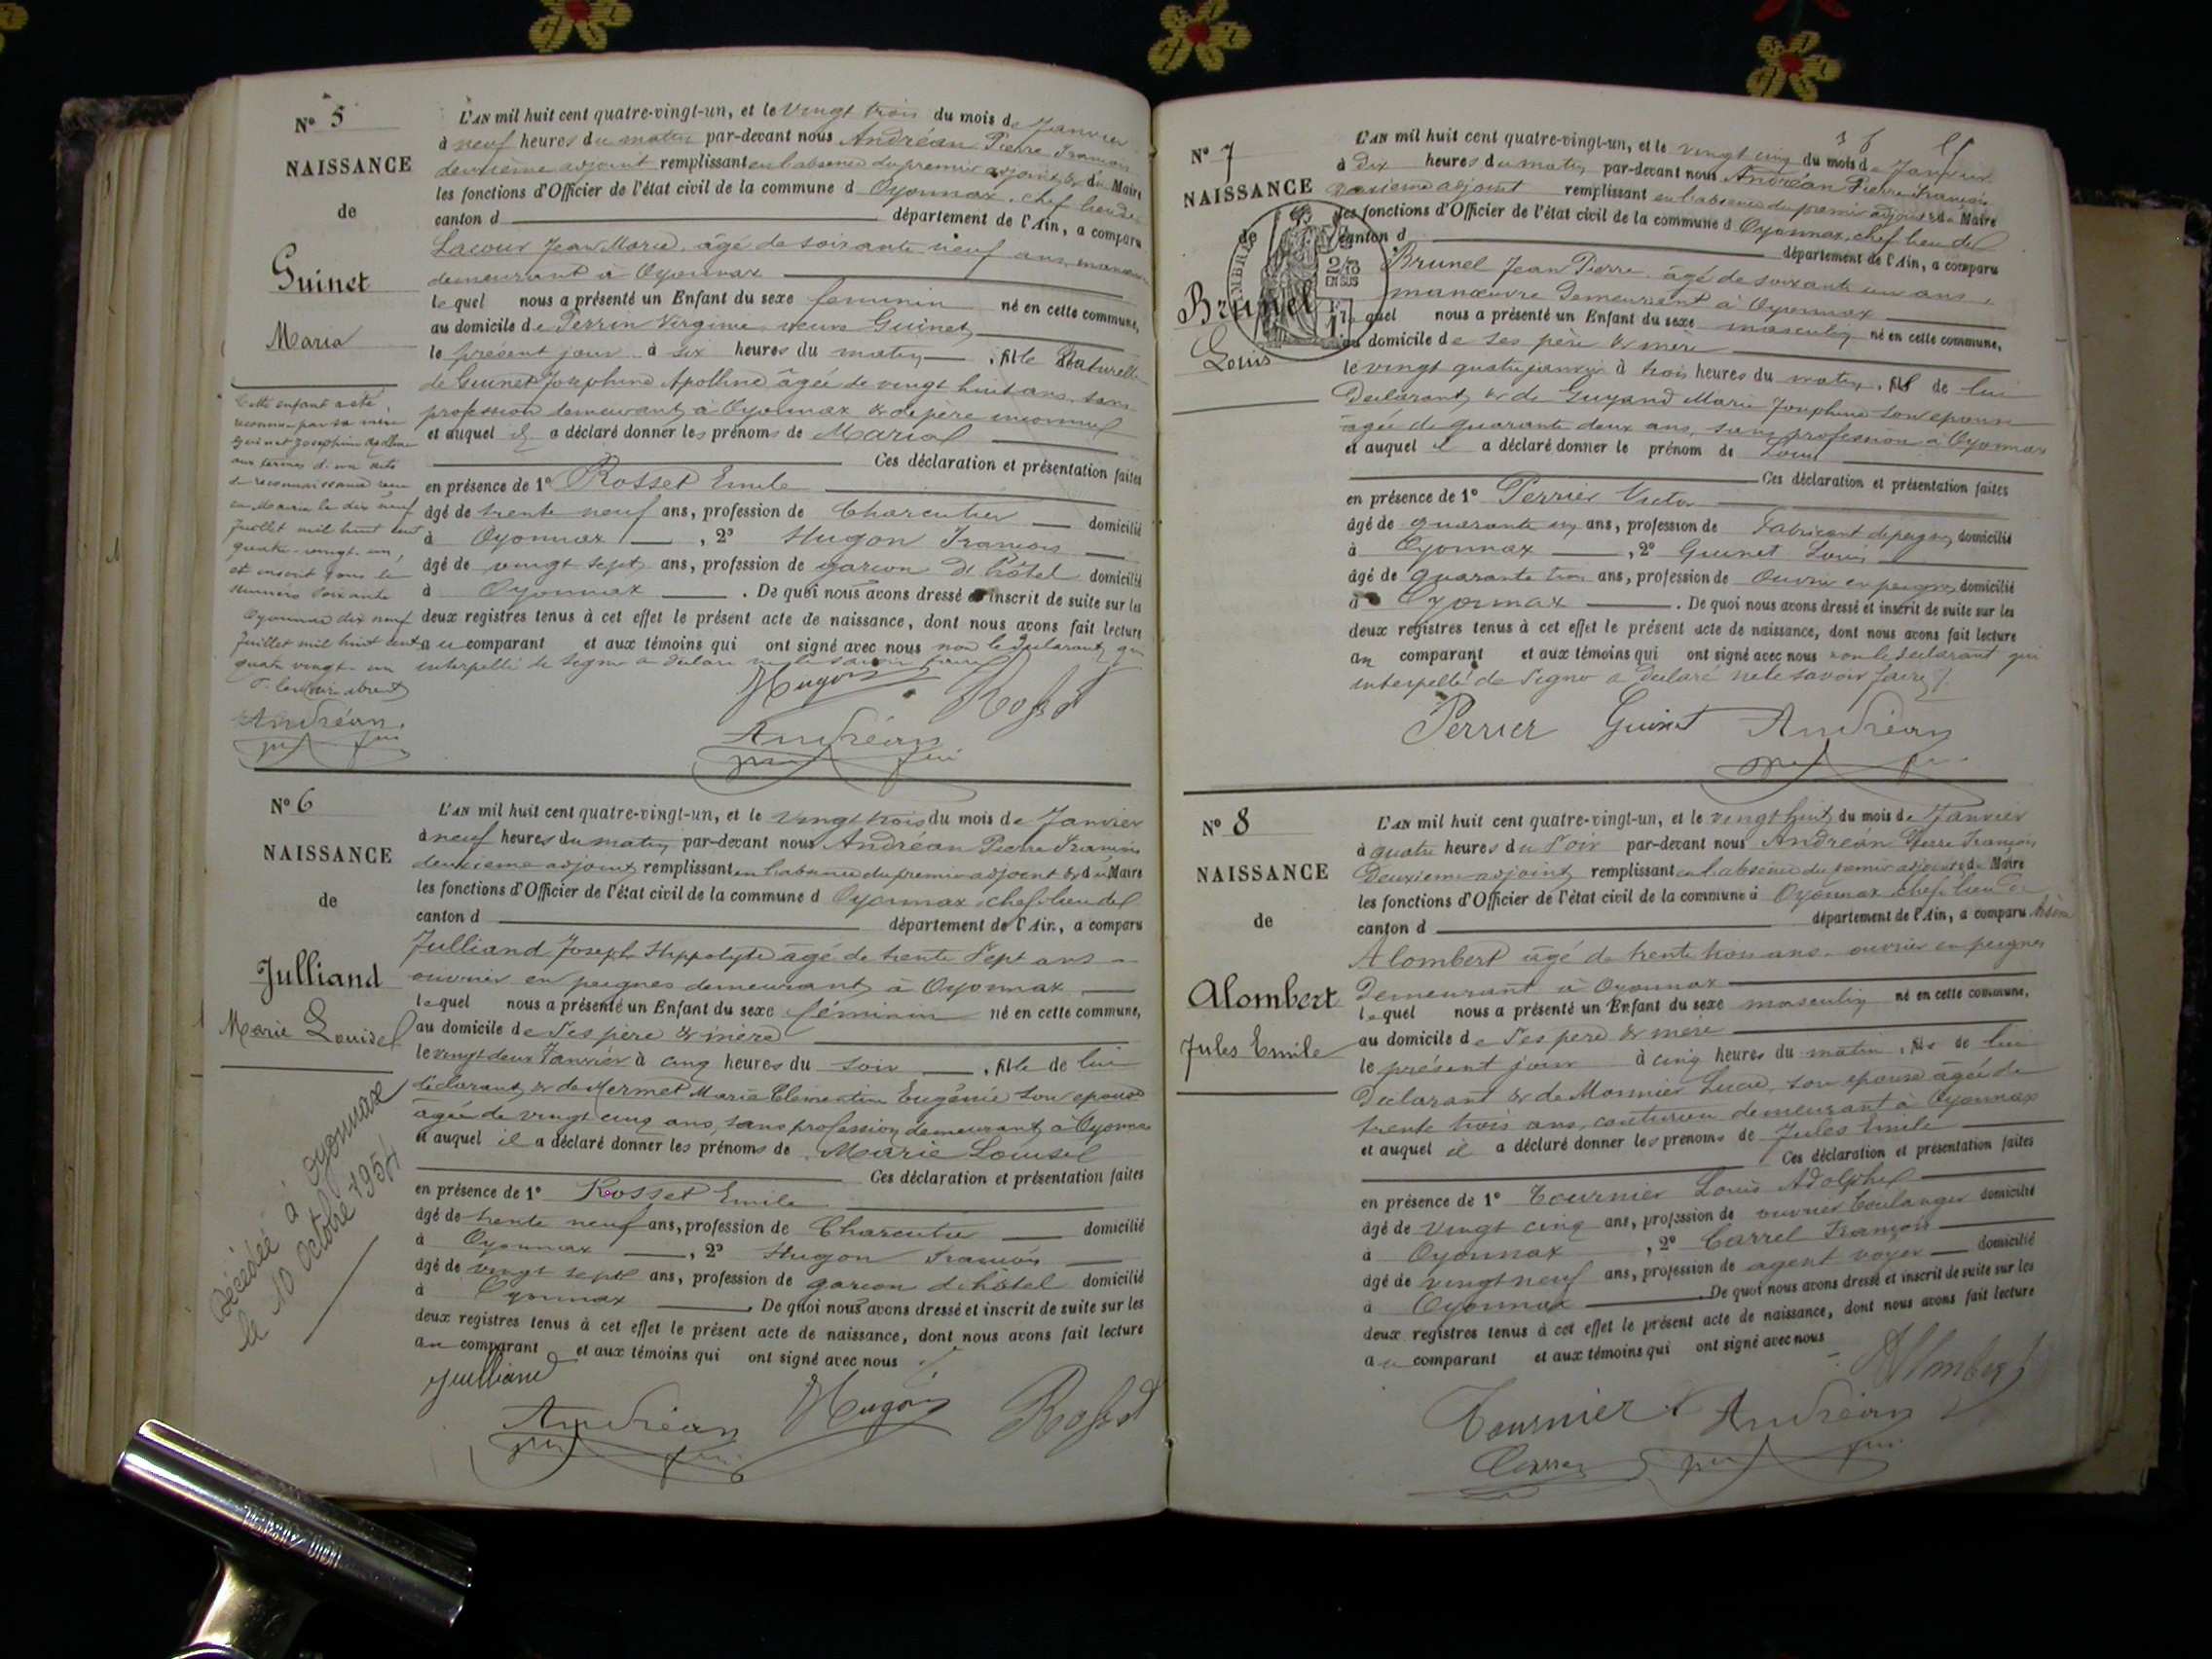 N° 5
NAISSANCE
de
Guinet
Maria
Cette enfant a été
reconnue par sa mère
Guinet Joséphine Apolline
aux termes d'un acte
de reconnaissance reçu
en Mairie le dix neuf
Juillet mil huit cent
quatre-vingt-un,
et inscrit sous le
numéro soixante
Oyonnax dix neuf
Juillet mil huit cent
quatre vingt-un
Andréan
L'AN mil huit cent quatre-vingt-un, et le vingt trois du mois de Janvier
à neuf heures du matin par-devant nous Andréan Pierre François
deuxième adjoint remplissant en l'absence du premier adjoint & du Maire
les fonctions d'Officier de l'état civil de la commune d Oyonnax, chef lieu de
canton d département de l'Ain, a comparu
Lacour Jean Marie, âgé de soixante neuf ans, manœuvre
demeurant à Oyonnax
lequel nous a présenté un Enfant du sexe féminin né en cette commune,
au domicile de Perrin Virginie veuve Guinet
le présent jour à six heures du matin, fille naturelle
de Guinet Joséphine Apolline âgée de vingt huit ans, sans
profession demeurant à Oyonnax & de père inconnu
et auquel il a déclaré donner les prénoms de Maria
Ces déclaration et présentation faites
en présence de 1° Rosset Emile
âgé de trente neuf ans, profession de Charcutier domicilié
à Oyonnax, 2° Hugon François
âgé de vingt sept ans, profession de garçon d'hôtel domicilié
à Oyonnax. De quoi nous avons dressé et inscrit de suite sur les
deux registres tenus à cet effet le présent acte de naissance, dont nous avons fait lecture
au comparant et aux témoins qui ont signé avec nous non le déclarant qui
interpellé de signer a déclaré ne le savoir faire
Hugon Rosset
Andréan
N° 6
NAISSANCE
de
Julliand
Marie Louise
Décédée à Oyonnax
le 10 Octobre 1954
L'AN mil huit cent quatre-vingt-un, et le vingt trois du mois de Janvier
à neuf heures du matin par-devant nous Andréan Pierre François
deuxième adjoint remplissant en l'absence du premier adjoint & du Maire
les fonctions d'Officier de l'état civil de la commune d Oyonnax, chef-lieu de
canton d département de l'Ain, a comparu
Julliand Joseph Hippolyte âgé de trente sept ans
ouvrier en peignes demeurant à Oyonnax
lequel nous a présenté un Enfant du sexe féminin né en cette commune,
au domicile de ses père & mère
le vingt deux Janvier à cinq heures du soir, fille de lui
déclarant & de Mermet Marie Clémentine Eugénie son épouse
âgée de vingt cinq ans, sans profession demeurant à Oyonnax
et auquel il a déclaré donner les prénoms de Marie Louise
Ces déclaration et présentation faites
en présence de 1° Rosset Emile
âgé de trente neuf ans, profession de Charcutier domicilié
à Oyonnax, 2° Hugon François
âgé de vingt sept ans, profession de garçon d'hôtel domicilié
à Oyonnax. De quoi nous avons dressé et inscrit de suite sur les
deux registres tenus à cet effet le présent acte de naissance, dont nous avons fait lecture
au comparant et aux témoins qui ont signé avec nous
Julliand
Andréan Hugon Rosset
N° 7
NAISSANCE
de
Brunel
Louis
L'AN mil huit cent quatre-vingt-un, et le vingt cinq du mois de Janvier
à dix heures du matin par-devant nous Andréan Pierre François
deuxième adjoint remplissant en l'absence du premier adjoint & du Maire
les fonctions d'Officier de l'état civil de la commune d Oyonnax, chef lieu de
canton d département de l'Ain, a comparu
Brunel Jean Pierre âgé de soixante un ans
manœuvre demeurant à Oyonnax
lequel nous a présenté un Enfant du sexe masculin né en cette commune,
au domicile de ses père & mère
le vingt quatre janvier à trois heures du matin, fils de lui
déclarant & de Guyand Marie Joséphine son épouse
âgée de quarante deux ans, sans profession à Oyonnax
et auquel il a déclaré donner le prénom de Louis
Ces déclaration et présentation faites
en présence de 1° Perrier Victor
âgé de quarante un ans, profession de Fabricant de peignes domicilié
à Oyonnax, 2° Guinet Louis
âgé de quarante trois ans, profession de Ouvrier en peignes domicilié
à Oyonnax. De quoi nous avons dressé et inscrit de suite sur les
deux registres tenus à cet effet le présent acte de naissance, dont nous avons fait lecture
au comparant et aux témoins qui ont signé avec nous non le déclarant qui
interpellé de signer a déclaré ne le savoir faire
Perrier Guinet Andréan
N° 8
NAISSANCE
de
Alombert
Jules Emile
L'AN mil huit cent quatre-vingt-un, et le vingt huit du mois de Janvier
à quatre heures du soir par-devant nous Andréan Pierre François
deuxième adjoint remplissant en l'absence du premier adjoint & du Maire
les fonctions d'Officier de l'état civil de la commune d Oyonnax chef-lieu de
canton d département de l'Ain, a comparu
Alombert âgé de trente trois ans ouvrier en peignes
demeurant à Oyonnax
lequel nous a présenté un Enfant du sexe masculin né en cette commune,
au domicile de ses père & mère
le présent jour à cinq heures du matin, fils de lui
déclarant & de Monnier Lucie, son épouse âgée de
trente trois ans, couturière demeurant à Oyonnax
et auquel il a déclaré donner les prénoms de Jules Emile
Ces déclaration et présentation faites
en présence de 1° Tournier Louis Adolphe
âgé de vingt cinq ans, profession de ouvrier boulanger domicilié
à Oyonnax, 2° Carrel François
âgé de vingt neuf ans, profession de agent voyer domicilié
à Oyonnax. De quoi nous avons dressé et inscrit de suite sur les
deux registres tenus à cet effet le présent acte de naissance, dont nous avons fait lecture
au comparant et aux témoins qui ont signé avec nous
Alombert
Tournier Andréan